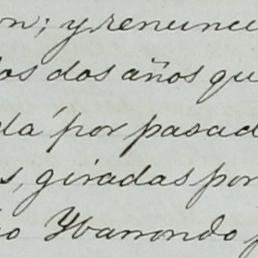 on; y renunci
los dos años qu
dá por pasad
s, giradas por
io Ybarrondo p